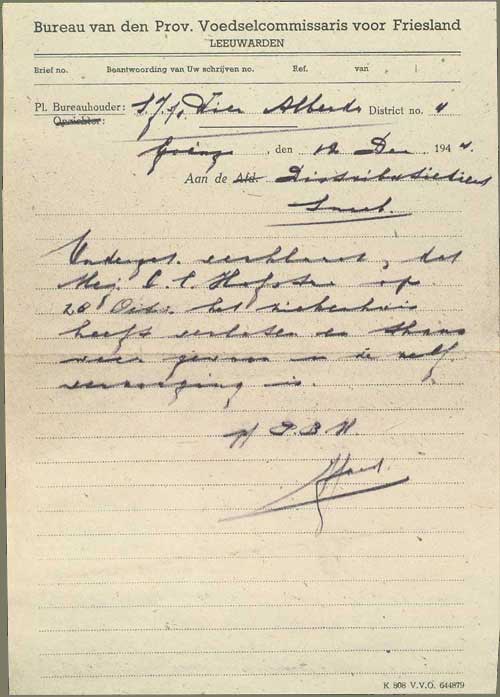 Bureau van den Prov. Voedselcommissaris voor Friesland
LEEUWARDEN
Brief no. Beantwoording van Uw schrijven no. Ref. van
Pl. Bureauhouder: Alberda District no. 4
Opzichter:
, den 12 Dec 1944.
Aan de Afd. Distributiedienst
Sneek.
Onderget. verklaart, dat
Mej. Hofstra op
28 Oct. het ziekenhuis
heeft verlaten en thans
weer gewoon in de zelf
verzorging is.
P. B. H.
K 808 V.V.O. 644879